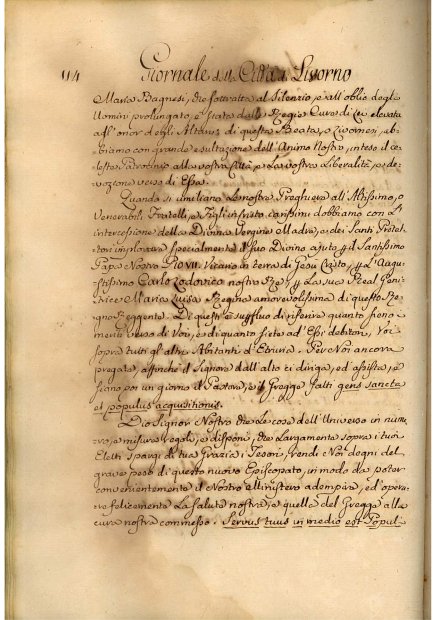 94 Giornale della Città di Livorno
Maria Bagnesi, che sottratta al Silenzio, e all'oblio degli
Uomini prolungato è stata dalla Regia Cura di Lei elevata
all'onor degli Altari. di questa Beata, o Livornesi, ab-
biamo con grande esultazione dell'Animo Nostro, inteso il ce-
leste Patrocinio alla vostra Città, e La vostra Liberalità, e de-
vozione verso di Essa.
Quando si umiliano Le nostre Preghiere all'Altissimo, o
Venerabili Fratelli, e Figli in Cristo carissimi dobbiamo con L'
intercessione della Divina Vergine Madre, e dei Santi Protet-
tori implorare specialmente il suo Divino ajuto p il Santissimo
Papa Nostro PIO VII. Vicario in terra di Gesù Cristo, p L'Augu-
stissimo Carlo Lodovico nostro Re, p La sua Real Geni-
trice Maria Luisa Regina amorevolissima di questo Re-
gno Reggente. Di questi è superfluo di riferire quanto sieno
meriti verso di Voi, e di quanto siete ad Essi debitori, Voi
sopra tutti gli altri Abitanti d'Etruria. Per Noi ancora
pregate, affinchè il Signore dall'alto ci diriga, ed assista, e
siano poi un giorno il Pastore, e il Gregge fatti gens sancta
et populus acquisitionis.
Dio Signor Nostro che Le cose dell'Universo in num-
ro, e misura regoli, e disponi, che Largamente sopra i tuoi
Eletti spargi di tua Grazia i Tesori, rendi Noi degni del
grave peso di questo nuovo Episcopato, in modo da poter
convenientemente il Nostro Ministero adempire, ed opera-
re felicemente La Salute nostra, e quella del Gregge alla
cura nostra commesso. Servus tuus in medio est Popul-